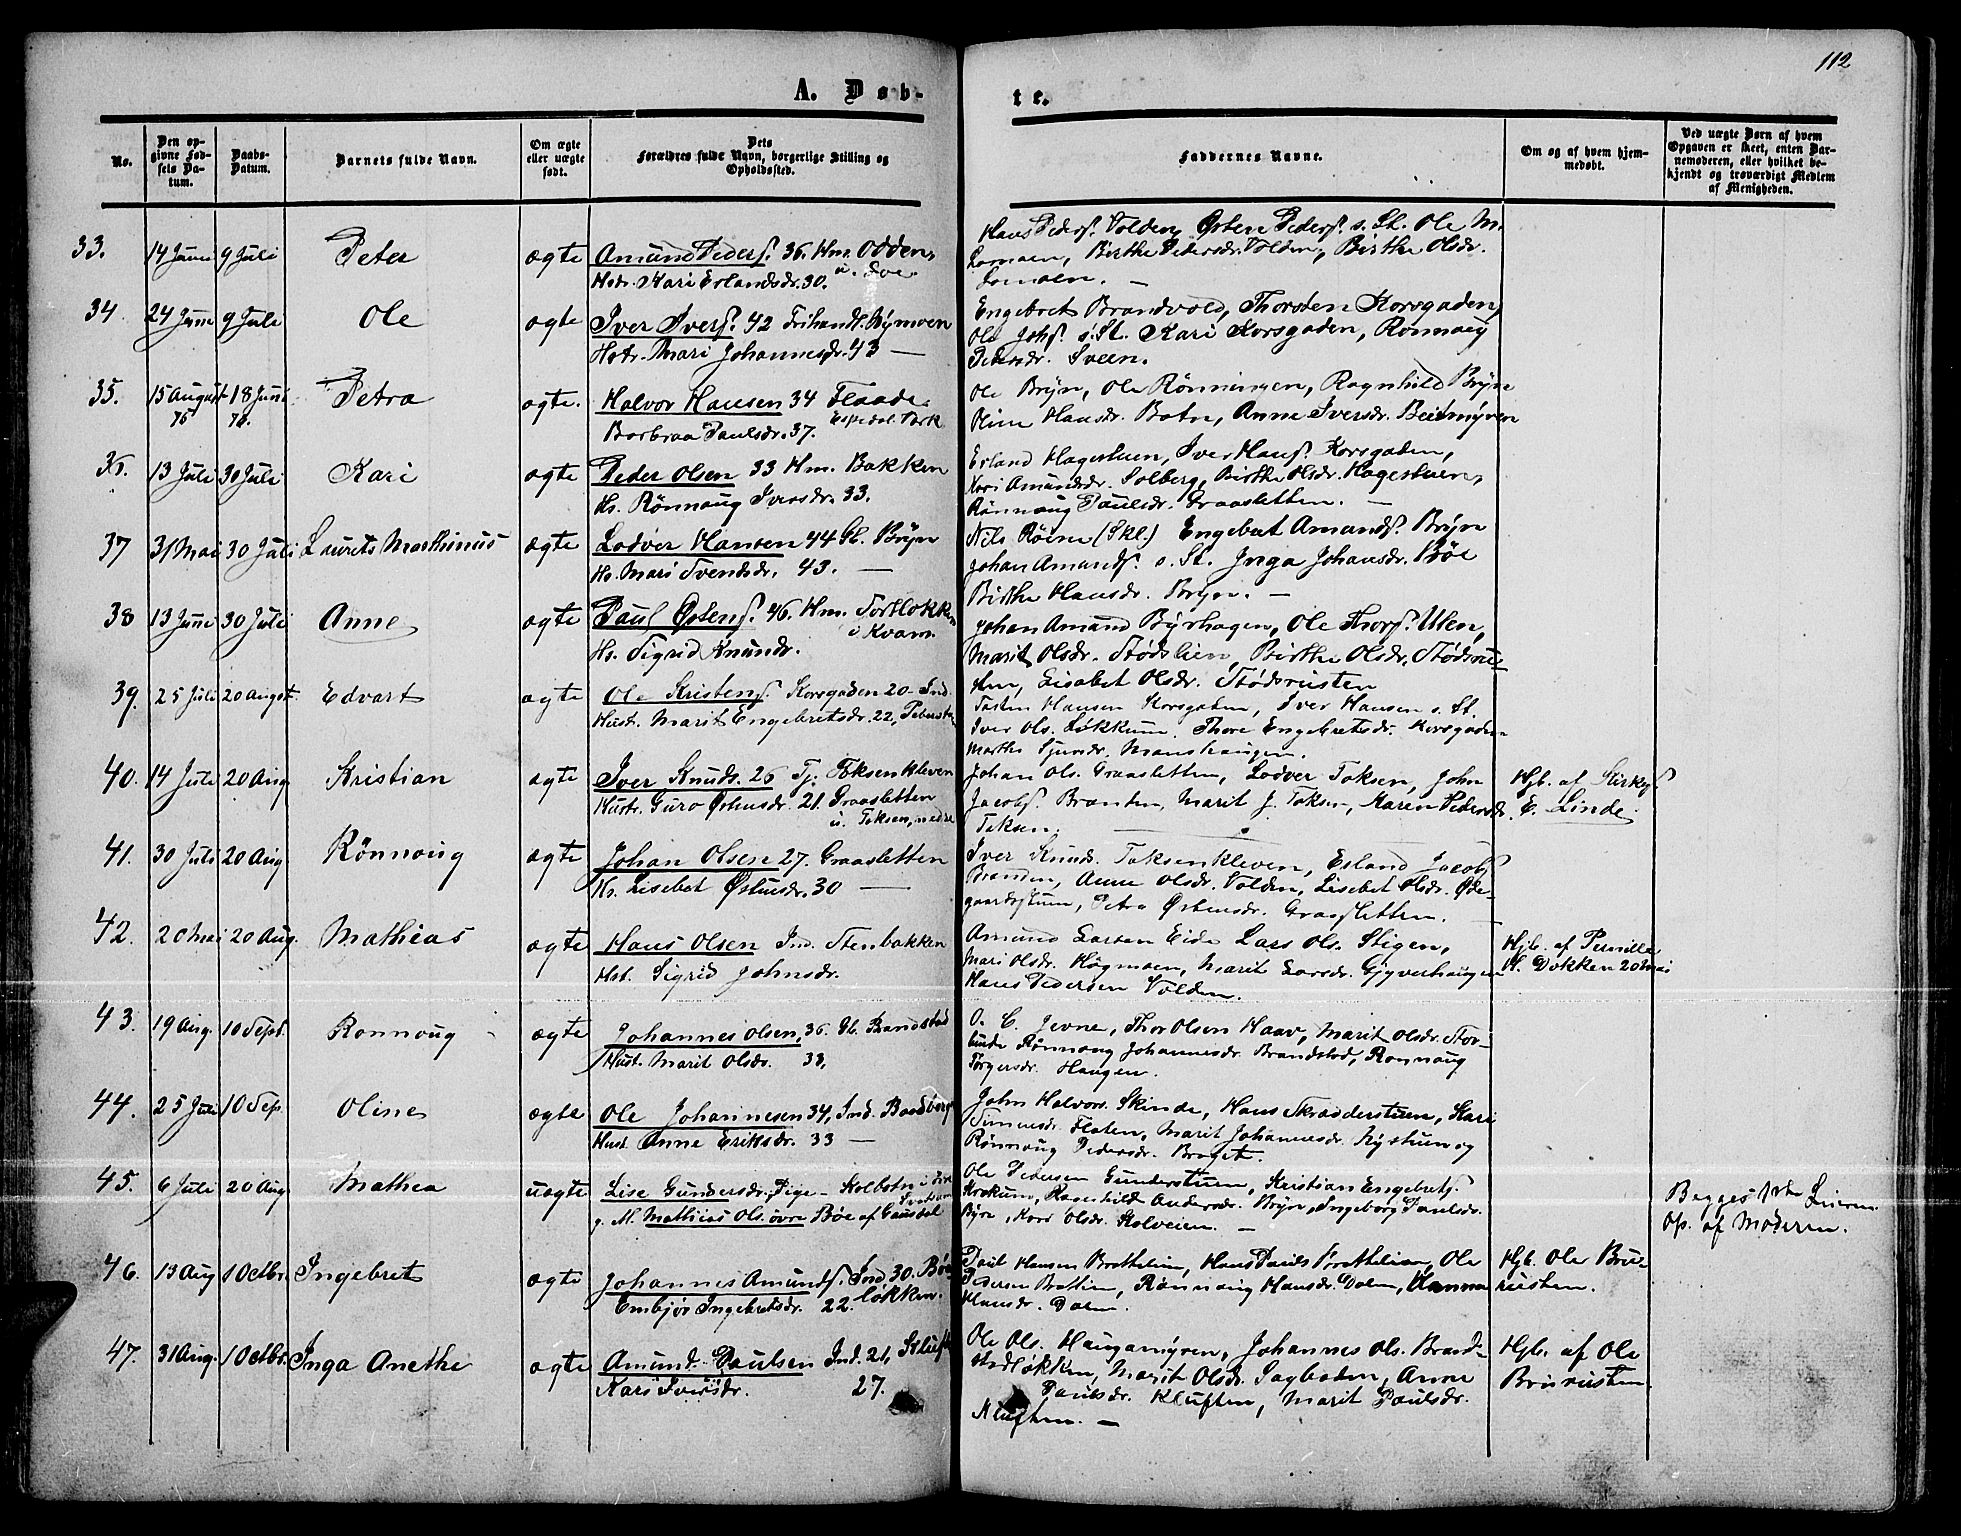 112
A. Døb-
te.
No.
Den op-
givne Fød-
sels Da-
tum.
Daabs-
Datum.
Barnets fulde Navn.
Om ægte
eller uægte
født.
Dets
Forældres fulde Navn, borgerlige Stilling og
Opholdssted.
Faddernes Navne.
Om og af hvem hjem-
medøbt.
Ved uægte Børn af hvem
Opgaven er skeet, enten Bar-
nemoderen, eller hvilket be-
kjendt og troværdigt Medlem
af Menigheden.
33. 14 Juni 9 Juli Peter ægte Amund Peders. 36. Hm. Odden,
Hstr. Kari Erlandsdr. 30.
Hans Peders. Volden, Østen Peders. s. St. Ole M.
Lomoen, Birthe Pedersdr. Volden, Birthe Olsdr.
Lomoen. —
34. 24 Juni 9 Juli Ole ægte Iver Ivers. 42 Frihandl. Bymoen
Hstr. Mari Johannesdr. 43 —
Engebret Brandvold, Thorsten Korsgaden,
Ole Johs. s. St. Kari Korsgaden, Rønnaug
Pedersdr. Sveen.
35. 15 August 75 18 Juni 76. Petra ægte. Halvor Hansen 34 Flaade.
Barbraa Paulsdr. 37. Espedal Værk
Ole Bryn, Ole Rønningen, Ragnhild Bryn
Oline Hansdr. Botn, Anne Iversdr. Beitmyren
36. 13 Juli 30 Juli Kari ægte Peder Olsen 33 Hm. Bakken
Hs. Rønnaug Iversdr. 33.
Erland Hagestuen, Iver Hans. Korsgaden,
Kari Amundsdr. Solberg, Birthe Olsdr. Hagestuen,
Rønnaug Paulsdr. Graasletten. —
37 31 Mai 30 Juli Laurits Marthinus ægte Lodver Hansen 44 Sl. Bryn
Hs. Mari Svendsdr. 43. —
Nils Røine (Skl.) Engebret Amunds. Bryn
Johan Amunds. s. St. Inga Johansdr. Bøe
Birthe Hansdr. Bryn. —
38 13 Juni 30 Juli Anne ægte Paul Østens. 46. Hm. Tortløkken
i Kvam
Hs. Sigrid Knundr.
Johan Amund Byrhagen, Ole Thors. Ulen,
Marit Olsdr. Stødslien, Birthe Olsdr. Stødsrus-
ten, Lisabet Olsdr. Stødsrusten
39. 25 Juli 20 August. Edvart ægte Ole Kristens. Korsgaden 20 - Ind.
Hust. Marit Engebretsdr. 22,
Torsten Hansen Korsgaden, Iver Hansen s. St.
Iver Ols. Løkkum Thore Engebretsdr. Korsgaden
Marthe Sjursdr. Manshaugen.
40. 14 Juli 20 Aug Kristian ægte Iver Knuds. 26 Tj. Toksenkleven
Hust. Guro Østensdr. 21. Graasletten
u. Toksen, nedre
Johan Ols. Graasletten, Lodver Toksen, John
Jacobs. Branden, Marit J. Toksen, Karen Pedersdr.
Toksen.
Hjb. af Kirkes.
E. Linde.
41. 30 Juli 20 Aug Rønnoug ægte Johan Olsen 27. Graasletten
Hs. Lisebet Østensdr. 30 —
Iver Knuds. Toksenkleven, Erland Jacobs.
Branden, Anne Olsdr. Volden, Lisebet Olsdr. Øde-
gaardsstuen, Petra Østensdr. Graasletten.
42. 20 Mai 20 Aug. Mathias ægte Hans Olsen Ind. Stenbakken
Hst. Sigrid Johnsdr.
Amund Larsen Eide Lars Ols. Stigen,
Mari Olsdr. Høgmoen, Marit Larsdr. Gyverhaugen
Hans Pedersen Volden.
Hjb. af Pernille
H. Dokken 20 Mai
43. 19 Aug. 10 Sept. Rønnoug ægte Johannes Olsen, 36. Brandstad
Hust. Marit Olsdr. 33,
O. C. Jevne, Thor Olsen Haav, Marit Olsdr. Stor-
Rønnoug Johannesdr. Brandstad, Rønnaug
Torgersdr. Haugen.
44. 25 Juli 10 Sep. Oline ægte Ole Johannesen 34, Ind. Baadberget
Hust Anne Eriksdr. 33 —
John Halvors. Skinde, Hans Skrædderstuen, Kari
Simensdr. Floten, Marit Johannesdr. Nystuen og
Rønnoug Pedersdr. Braget.
45. 6 Juli 20 Aug. Mathea uægte Lise Gundersdr. Pige - Kolbotn i
g. M. Mathias Ols. øvre Bøe af Gausdal
Ole Pedersen Gunderstuen, Kristian Engebrets.
Krokum, Ragnhild Andersdr. Bryn, Ingeborg Paulsdr.
Byre, Kari Olsdr. Skolveien. —
Begges 1ste Leierm.
Op. af Moderen.
46. 13 Aug 1 Octbr. Ingebret ægte Johannes Amunds. Ind. 30. Bøe-
løkken.
Embjør Ingebretsdr. 22.
Poul Hansen Brattelien, Hans Pauls. Brattelien, Ole
Pedersen Brattlien, Rønnaug Hansdr. Dalen, Hanna
Hansdr. Dalen.
Hjb. Ole Bru-
rusten.
47. 31 Aug. 1 Octbr. Inga Anethe ægte Amund Paulsen Ind. 21, Kluften
Kari Iversdr. 27.
Ole Ols. Haugamyren, Johannes Ols. Brand-
stadløkken, Marit Olsdr. Sagbaden, Anne
Paulsdr. Kluften, Marit Paulsdr.
Kluften. —
Hjb. af Ole
Brurusten.